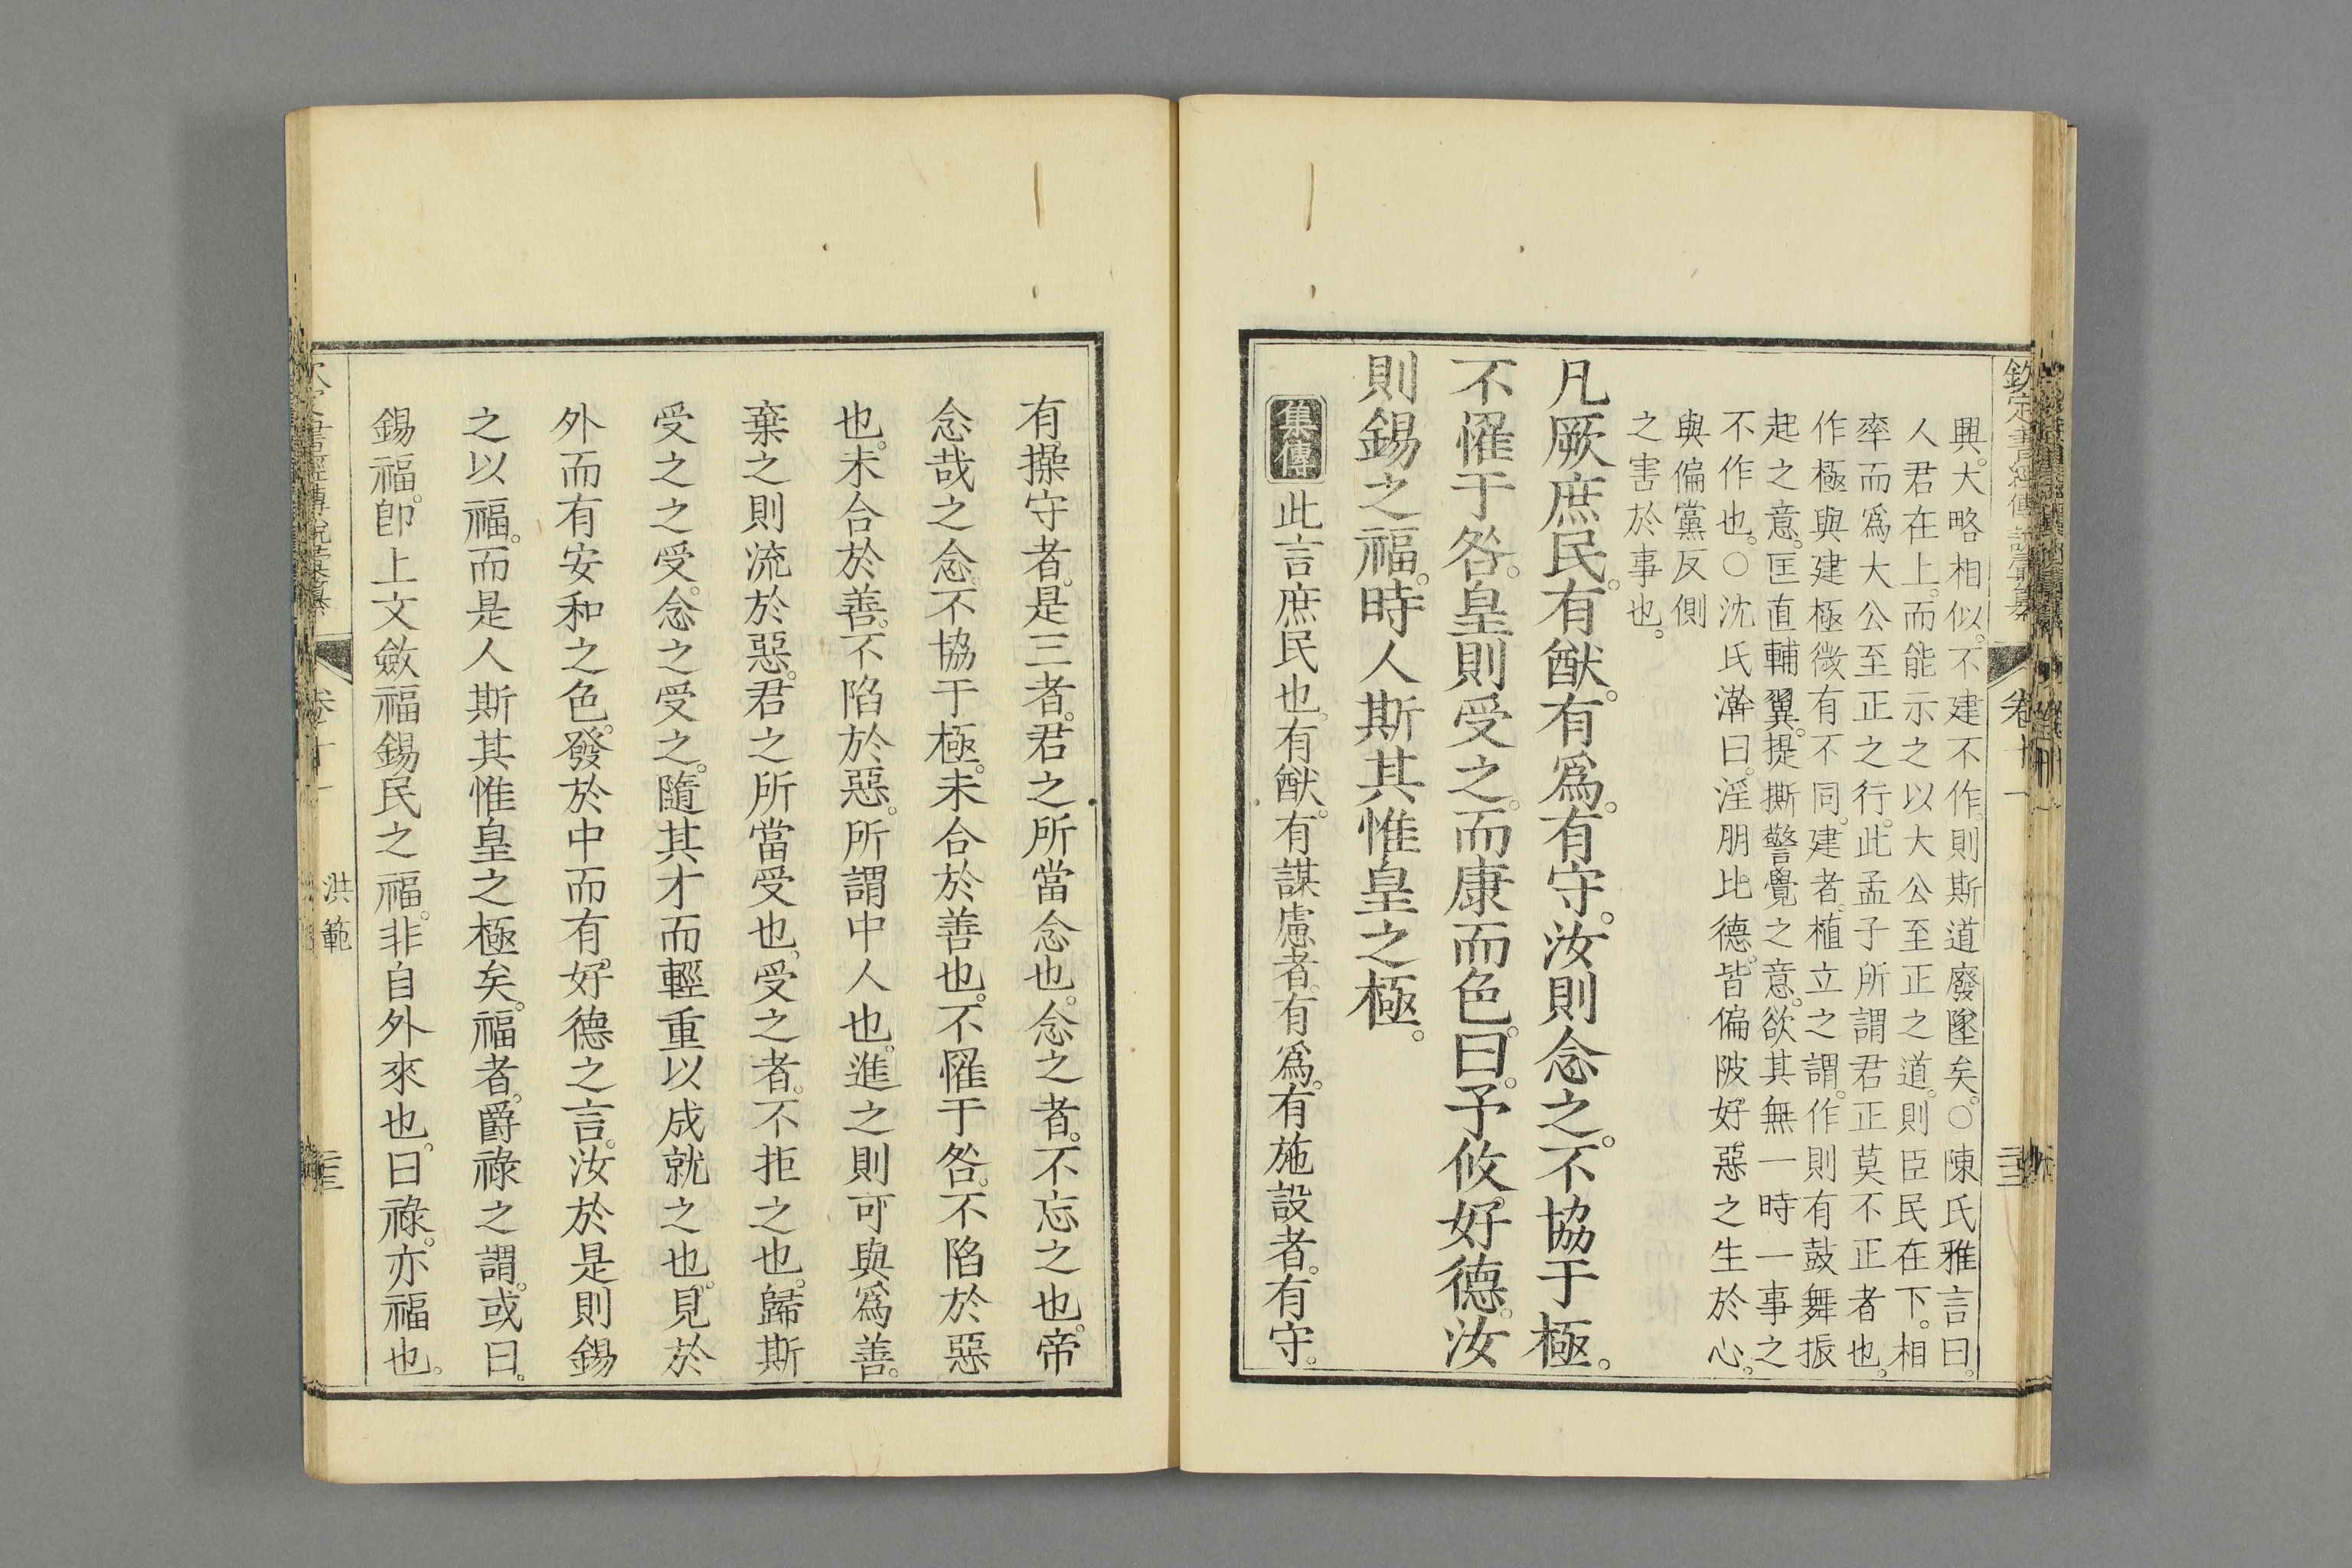 欽定書經傳說彙纂 卷十一
興。大略相似。不建不作。則斯道廢墜矣。○陳氏雅言曰。
人君在上。而能示之以大公至正之道。則臣民在下。相
率而爲大公至正之行。此孟子所謂君正莫不正者也。
作極與建極微有不同。建者。植立之謂。作則有鼓舞振
起之意。匡直輔翼。提撕警覺之意。欲其無一時一事之
不作也。○沈氏澣曰。淫朋比德。皆偏陂好惡之生於心。
與偏黨反側
之害於事也。
凡厥庶民。有猷。有爲。有守。汝則念之。不協于極。
不罹于咎。皇則受之。而康而色。曰。予攸好德。汝
則錫之福。時人斯其惟皇之極。
集傳 此言庶民也。有猷。有謀慮者。有爲。有施設者。有守。
有操守者。是三者。君之所當念也。念之者。不忘之也。帝
念哉之念。不協于極。未合於善也。不罹于咎。不陷於惡
也。未合於善。不陷於惡。所謂中人也。進之則可與爲善。
棄之則流於惡。君之所當受也。受之者。不拒之也。歸斯
受之之受。念之受之。隨其才而輕重以成就之也。見於
外而有安和之色。發於中而有好德之言。汝於是則錫
之以福。而是人斯其惟皇之極矣。福者。爵祿之謂。或曰。
錫福。卽上文斂福錫民之福。非自外來也。曰祿。亦福也。
書經傳說彙纂 卷十一 洪範